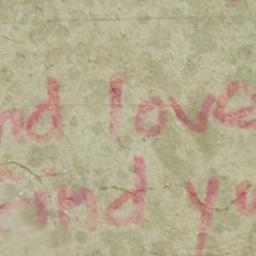 nd love
find yo